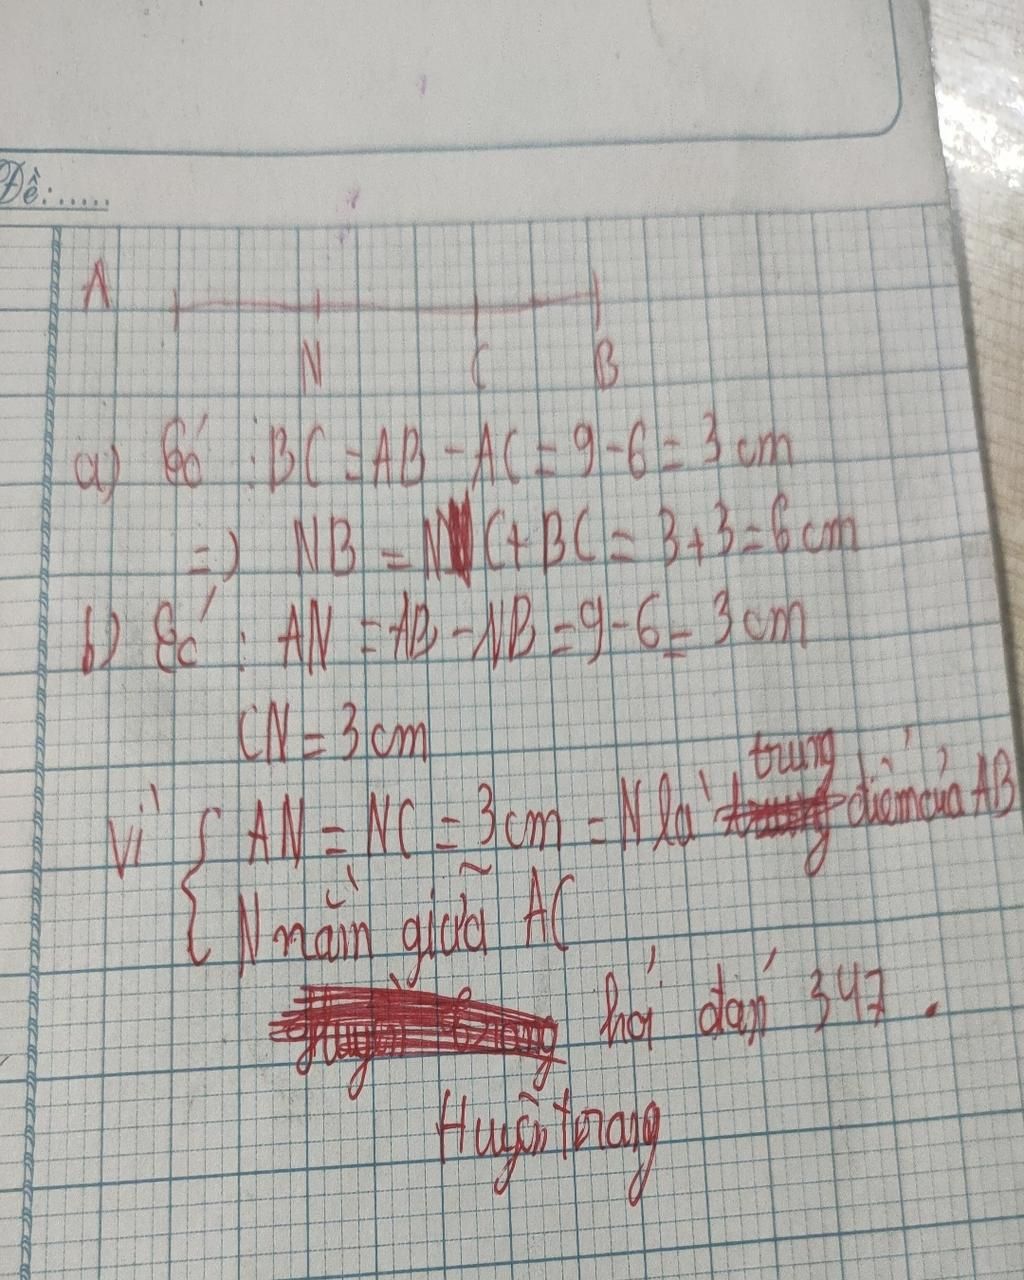 Đề:......
A
N C B
a) Có : BC = AB - AC = 9 - 6 = 3 cm
=) NB = NC + BC = 3 + 3 = 6 cm
b) Có : AN = AB - NB = 9 - 6 = 3 cm
CN = 3 cm
trung
Vì { AN = NC = 3 cm = N là điểm của AB
N nằm giữa AC
347.
Huyền trang